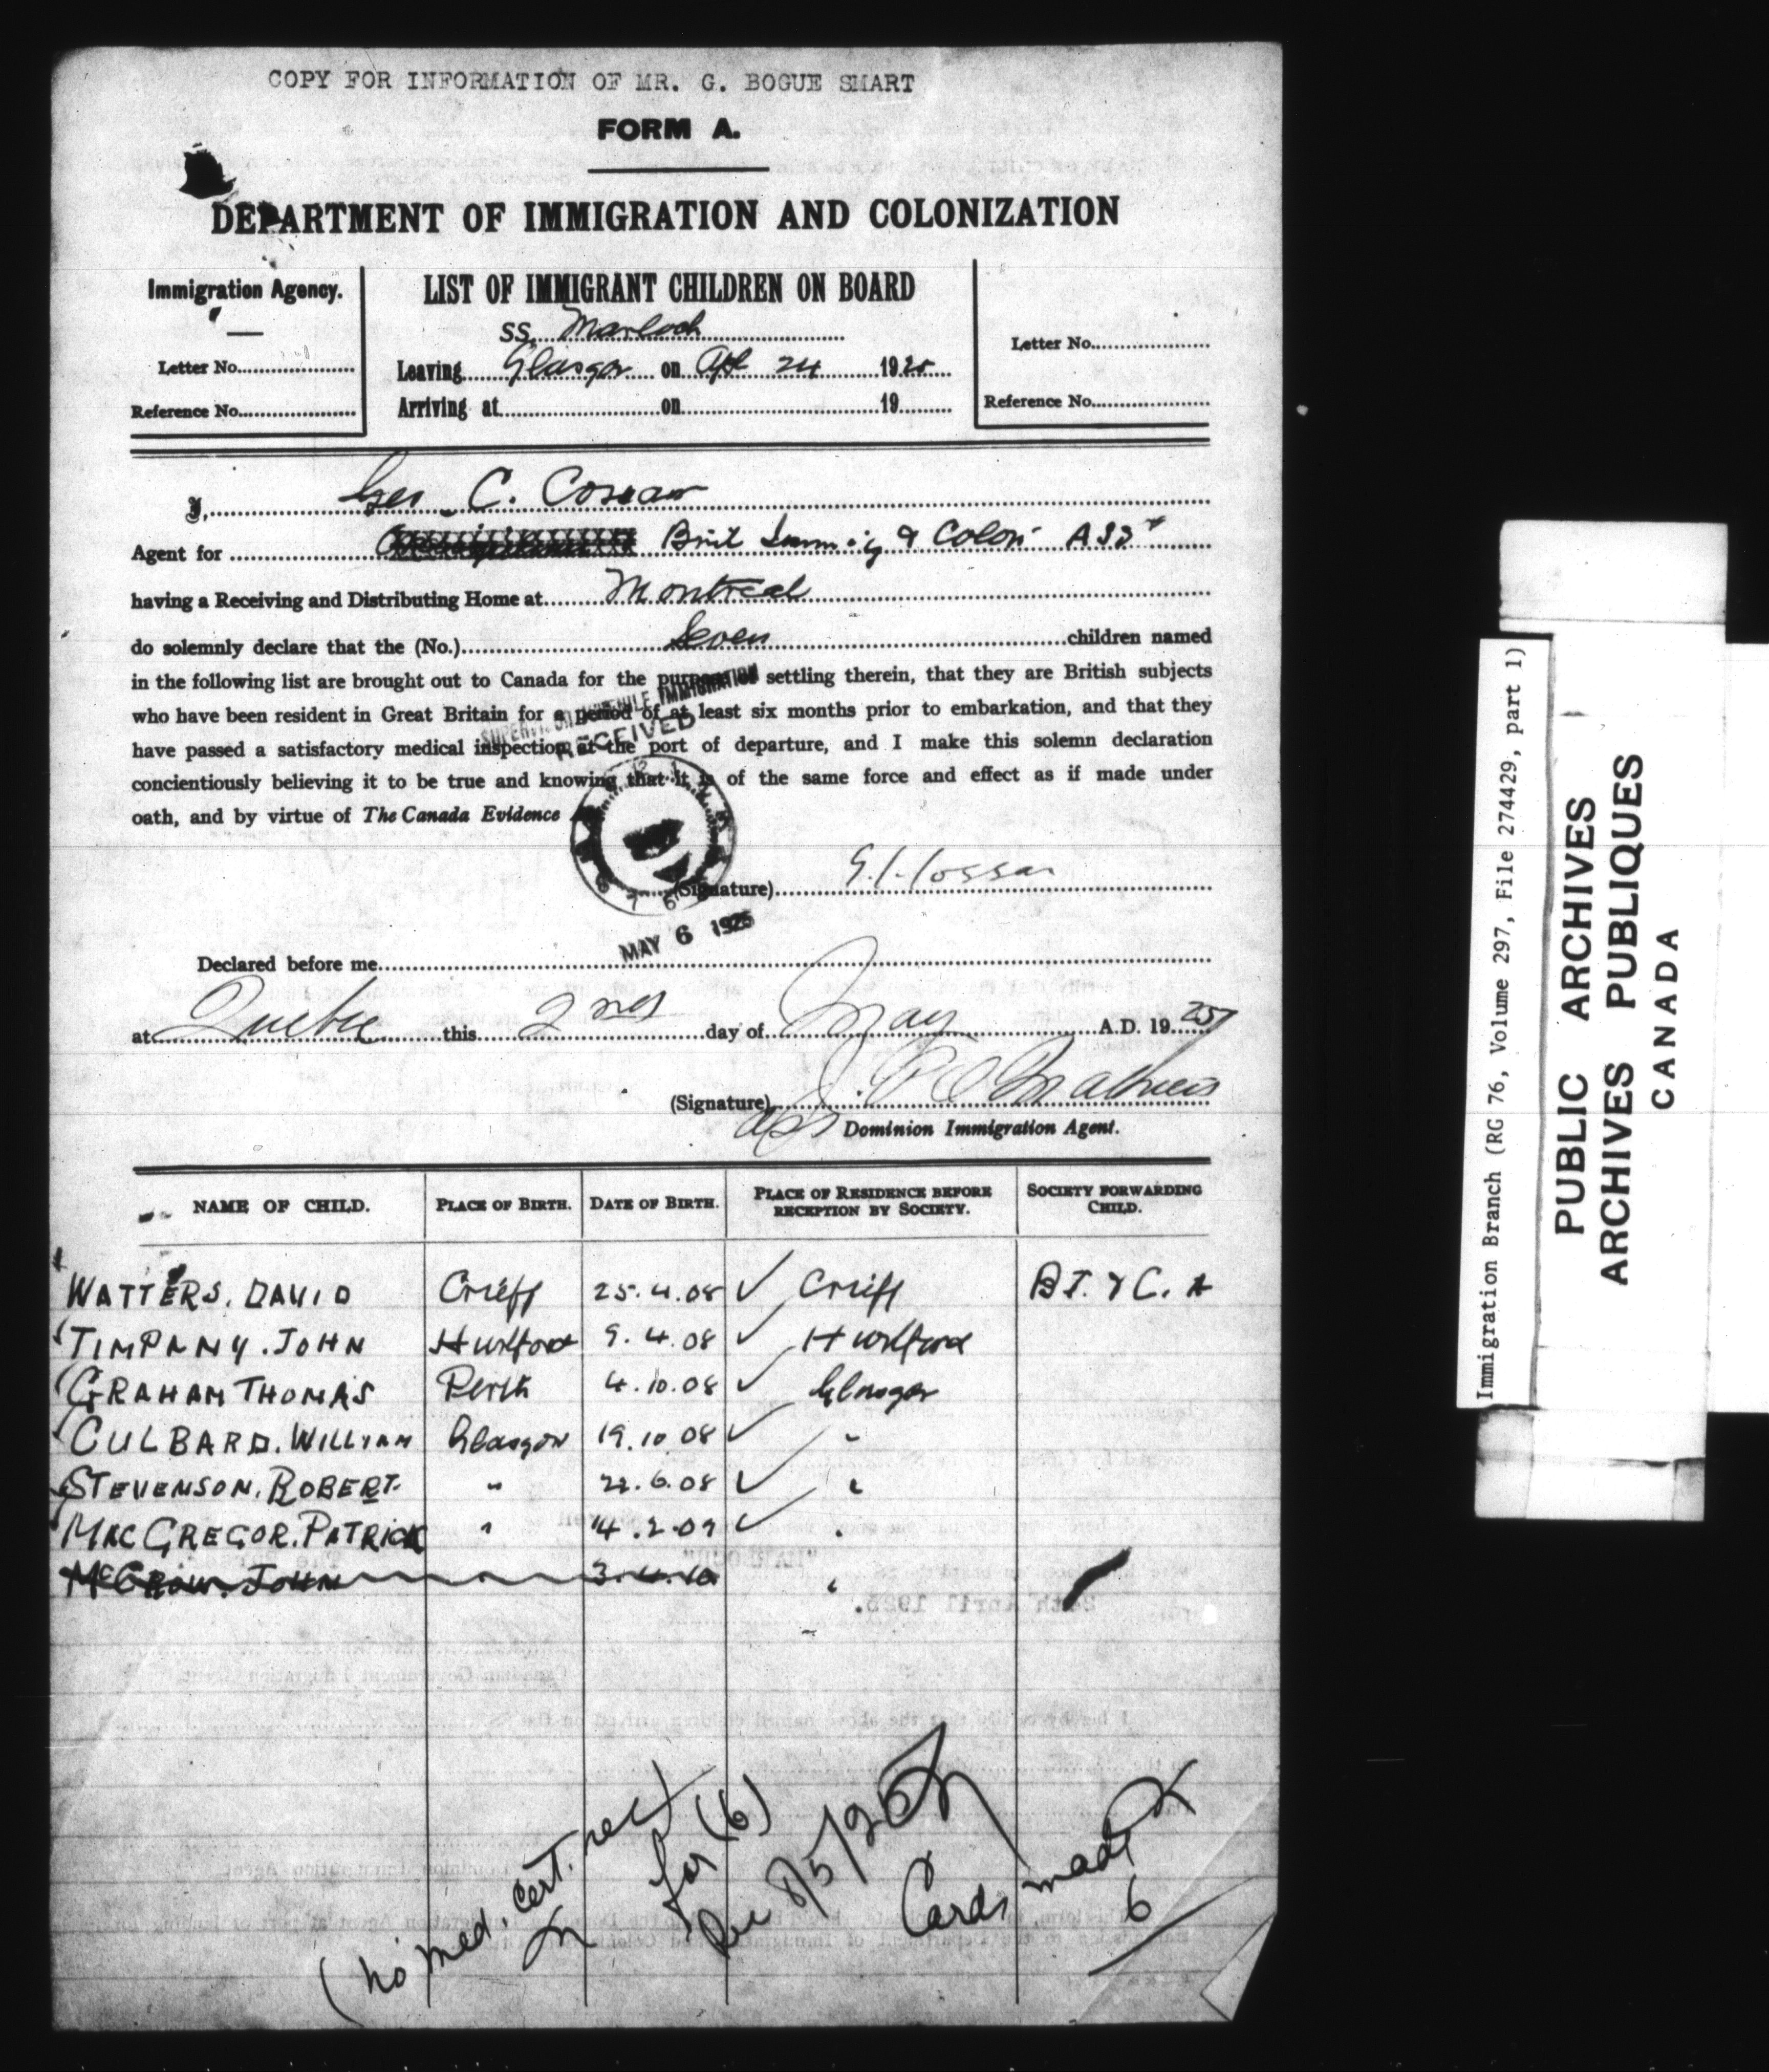 COPY FOR INFORMATION OF MR. G. BOGUE SMART
FORM A.
DEPARTMENT OF IMMIGRATION AND COLONIZATION
Immigration Agency.
Letter No.
Reference No.
LIST OF IMMIGRANT CHILDREN ON BOARD
SS. Marloch
Leaving Glasgow on Apl 24 1925
Arriving at on 19
Letter No.
Reference No.
I, Geo. C. Cossar
Agent for Brit Immig & Colon Assn
having a Receiving and Distributing Home at Montreal
do solemnly declare that the (No.) Seven children named
in the following list are brought out to Canada for the purpose of settling therein, that they are British subjects
who have been resident in Great Britain for a period of at least six months prior to embarkation, and that they
have passed a satisfactory medical inspection at the port of departure, and I make this solemn declaration
concientiously believing it to be true and knowing that it is of the same force and effect as if made under
oath, and by virtue of The Canada Evidence
SUPERVISOR JUVENILE IMMIGRATION
RECEIVED
MAY 6 1925
(Signature) G. C. Cossar
Declared before me
at Quebec this 2nd day of May A.D. 1925
(Signature)
Dominion Immigration Agent.
NAME OF CHILD. PLACE OF BIRTH. DATE OF BIRTH. PLACE OF RESIDENCE BEFORE RECEPTION BY SOCIETY. SOCIETY FORWARDING CHILD.
WATTERS. DAVID Crieff 25.4.08 ✓ Crieff B I. & C. A
TIMPANY. JOHN Hurlford 9.4.08 ✓ Hurlford
GRAHAM THOMAS Perth 4.10.08 ✓ Glasgow
CULBARD. WILLIAM Glasgow 19.10.08 ✓ "
STEVENSON. ROBERT. " 22.6.08 ✓ "
MACGREGOR. PATRICK " 14.2.09 ✓ "
McGROW. JOHN 3.4.10 "
(No med. cert. rec'd
for (6)
Rec 8/5/25
Cards made
6
Immigration Branch (RG 76, Volume 297, File 274429, part 1)
PUBLIC ARCHIVES
ARCHIVES PUBLIQUES
CANADA